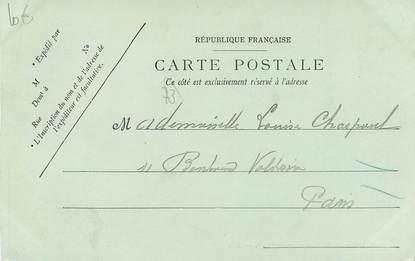 68
* Expédié par
M
Demt à
Rue N°
* L'Inscription du nom et de l'adresse de
l'expéditeur est facultative.
RÉPUBLIQUE FRANÇAISE
CARTE POSTALE
Ce côté est exclusivement réservé à l'adresse
73
Mademoiselle Louise
11
Paris